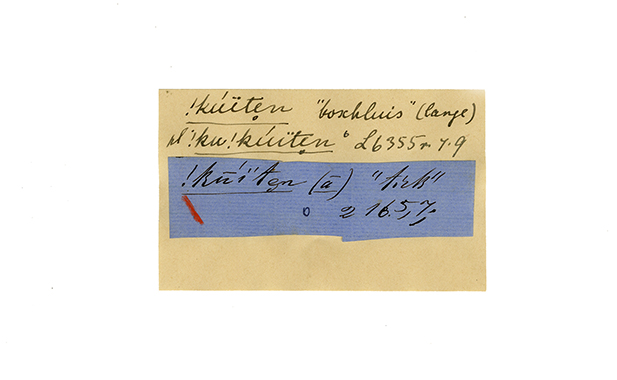 !kúïtẹn "boschluis" (lange)
pl !ku!kúïtẹn ° L 6355 r. 7.9
!kúïtẹn (ā) "tick"
o 2 16.5, 7,